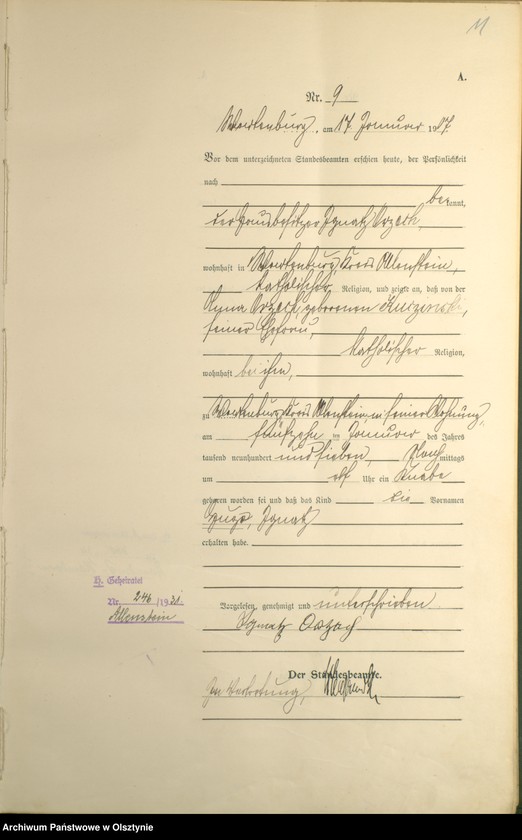 11
A.
Nr. 9
Wartenburg, am 17 Januar 1907
Vor dem unterzeichneten Standesbeamten erschien heute, der Persönlichkeit
nach
bekannt,
der Hausbesitzer Ignatz Orzech,
wohnhaft in Wartenburg Kreis Allenstein,
katholischer Religion, und zeigte an, daß von der
Anna Orzech, geborenen
seiner Ehefrau,
katholischer Religion,
wohnhaft bei ihm,
zu Wartenburg Kreis Allenstein, in seiner Wohnung,
am fünfzehn ten Januar des Jahres
tausend neunhundert und sieben, Nachmittags
um elf Uhr ein Knabe
geboren worden sei und daß das Kind die Vornamen
Hugo, Ignatz
erhalten habe.
H. Geheiratet
Nr. 246/1931.
Allenstein
Vorgelesen, genehmigt und unterschrieben
Ignatz Orzech
Der Standesbeamte.
In Vertretung,
Archiwum Państwowe w Olsztynie